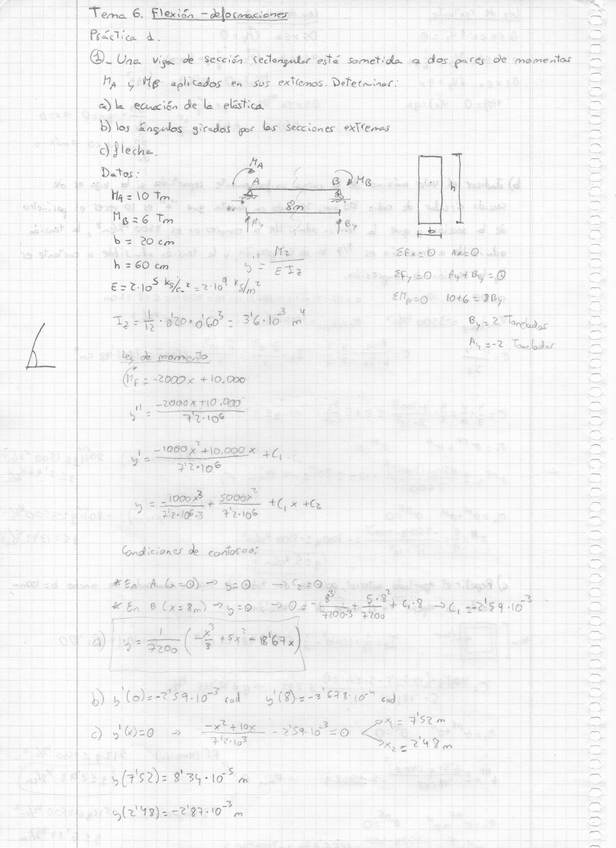 Tema 6. Flexión - deformaciones
Práctica 1.
① - Una viga de sección rectangular está sometida a dos pares de momentos
MA y MB aplicados en sus extremos. Determinar:
a) la ecuación de la elástica
b) los ángulos girados por las secciones extremas
c) flecha.
Datos:
MA = 10 Tm
MB = 6 Tm
b = 20 cm
h = 60 cm
E = 2·10⁵ kg/cm² = 2·10⁹ kg/m²
Iz = 1/12 · 0'20 · 0'60³ = 3'6·10⁻³ m⁴
MA
A B MB
8m
Ay By
y'' = Mz / E Iz
h
b
ΣFx=0 Ax=0
ΣFy=0 Ay+By=0
ΣMA=0 10+6=8By
By=2 Toneladas
Ay=-2 Toneladas
Ley de momento
Mf = -2000x + 10.000
y'' = (-2000x+10.000) / 7'2·10⁶
y' = (-1000x²+10.000x) / 7'2·10⁶ + C1
y = -1000x³ / 7'2·10⁶·3 + 5000x² / 7'2·10⁶ + C1x + C2
Condiciones de contorno:
* En A (x=0) → y=0 → C2=0
* En B (x=8m) → y=0 → 0 = -8³/7200·3 + 5·8²/7200 + C1·8 → C1=-2'59·10⁻³
a) y = 1/7200 (-x³/3 + 5x² - 18'67x)
b) y'(0)=-2'59·10⁻³ rad y'(8)=-3'678·10⁻⁴ rad
c) y'(x)=0 → (-x²+10x) / 7'2·10³ - 2'59·10⁻³=0 x1=7'52 m
x2=2'48 m
y(7'52)=8'34·10⁻⁵ m
y(2'48)=-2'87·10⁻³ m